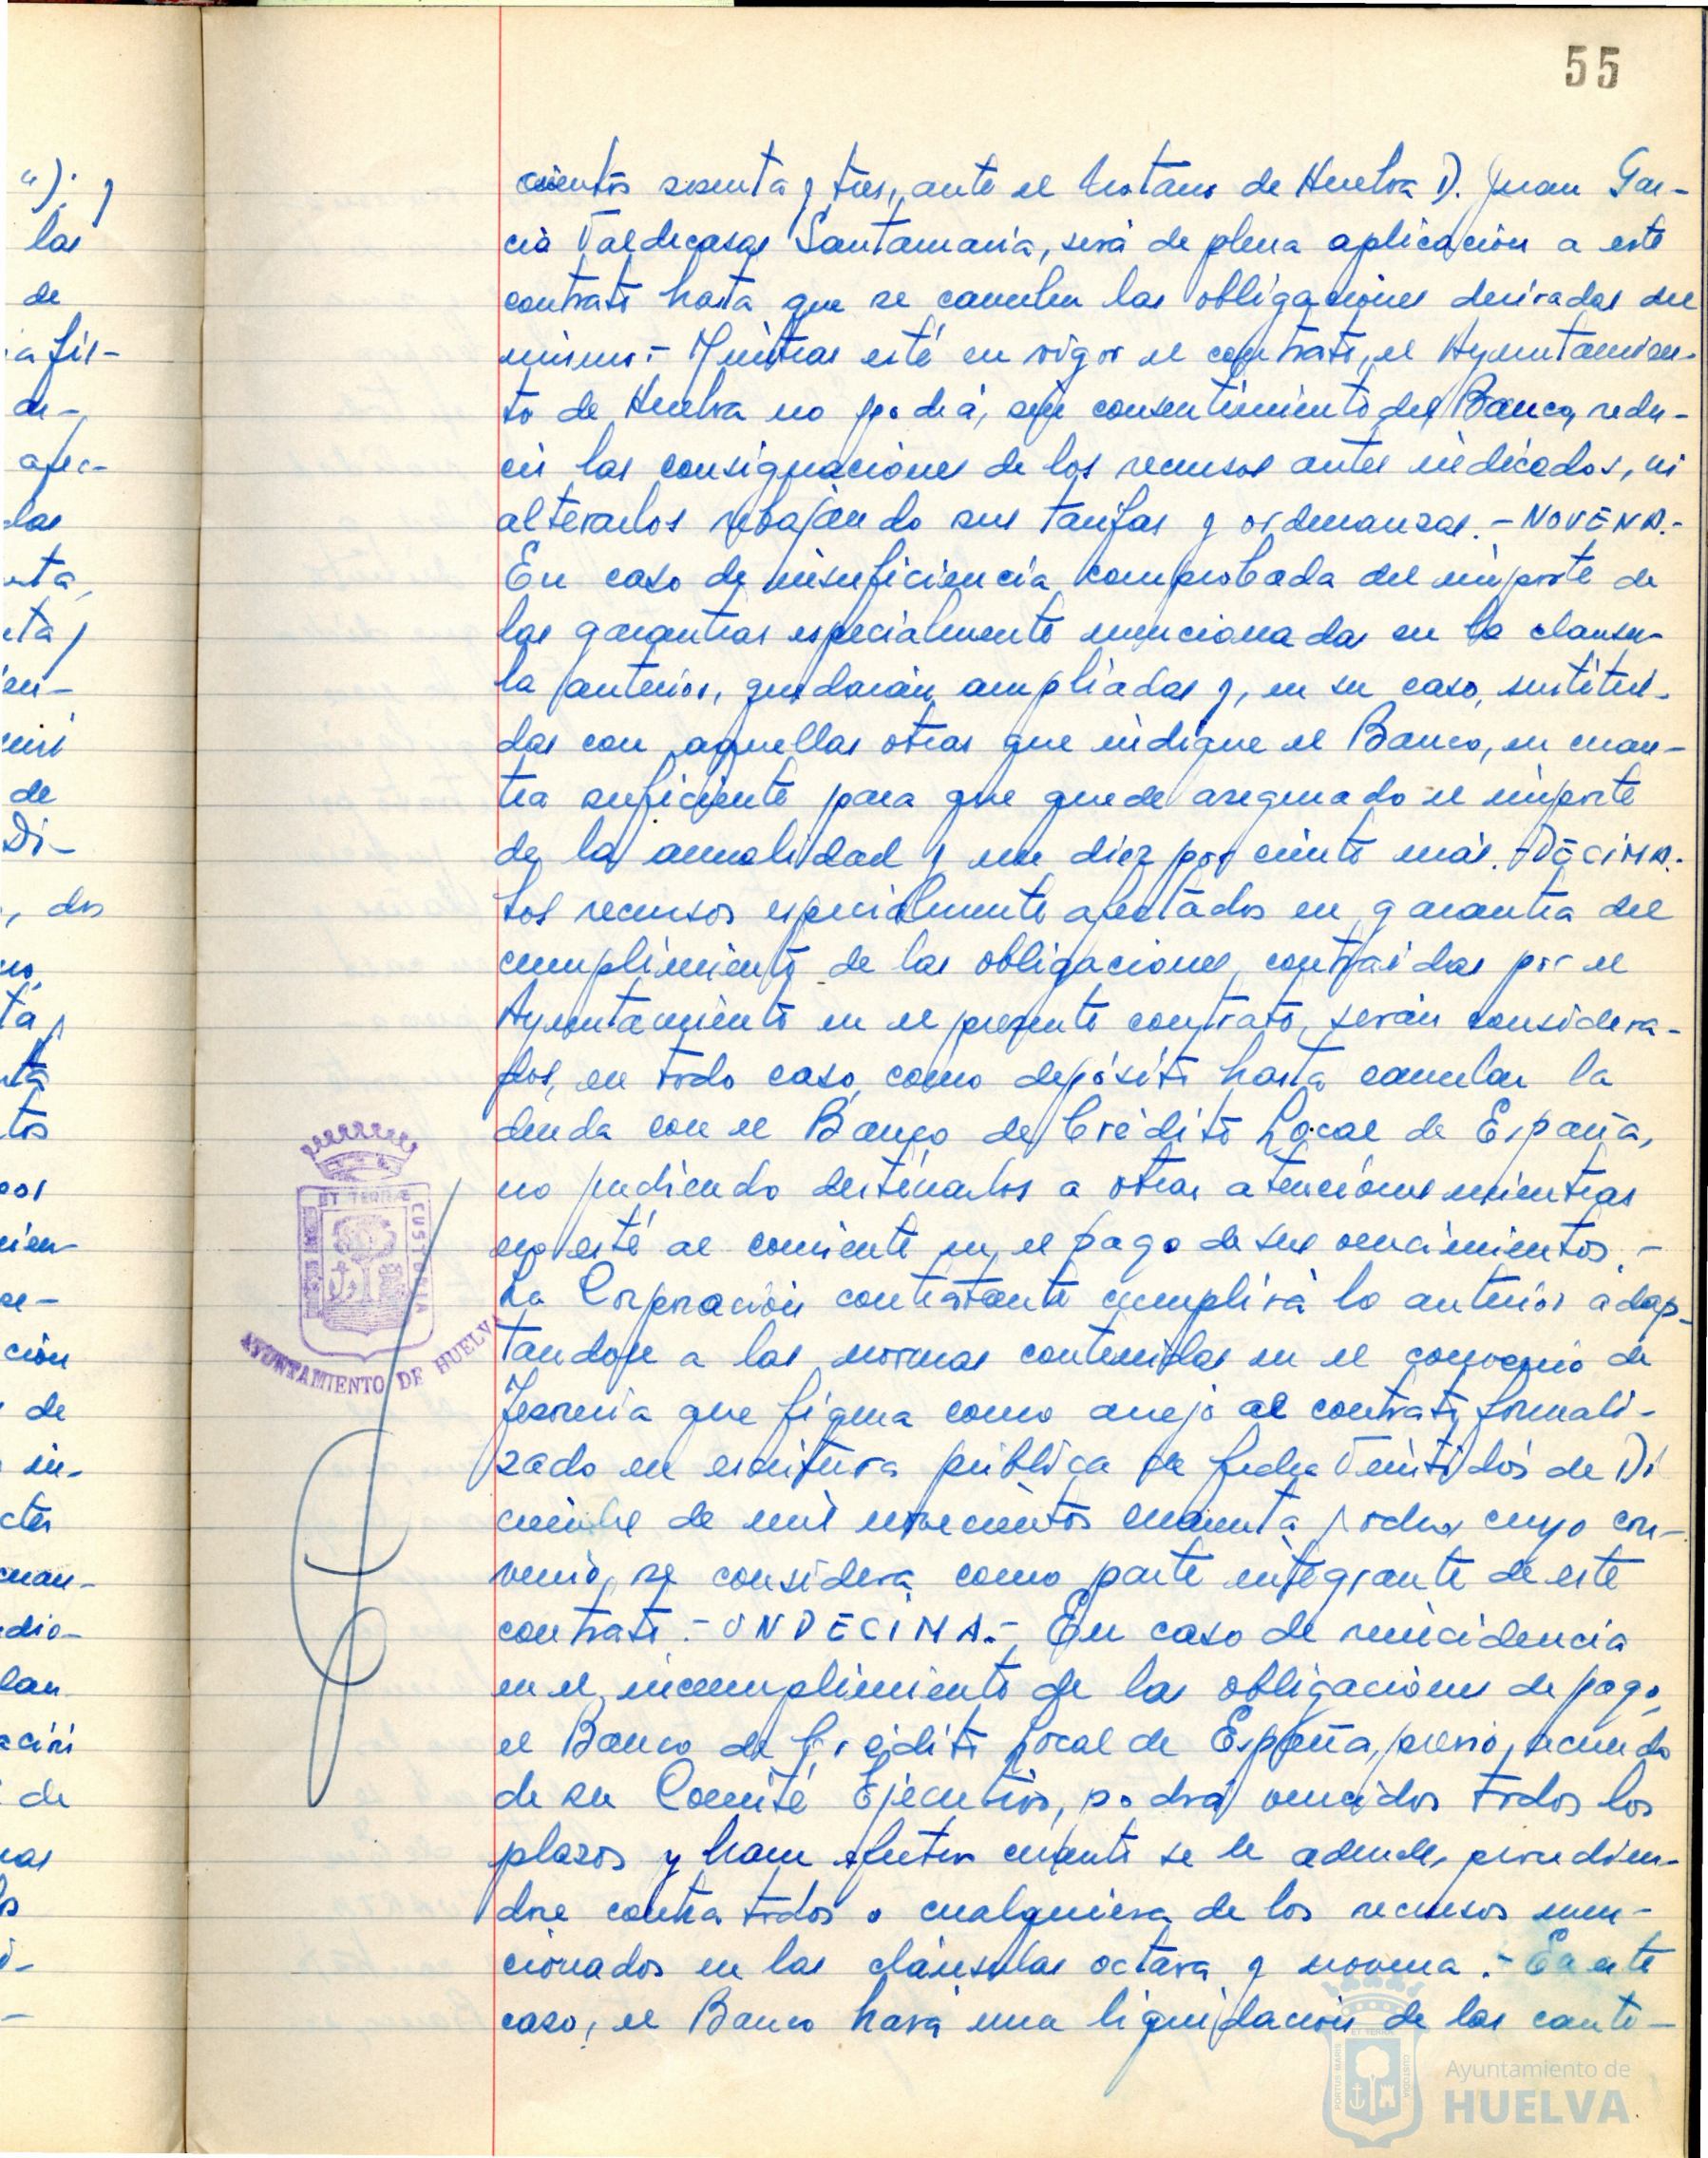 55
cientos sesenta y tres, ante el Notario de Huelva D. Juan Gar-
cía Valdecasas Santamaría, será de plena aplicación a este
contrato hasta que se cancelen las obligaciones derivadas del
mismo.- Mientras esté en vigor el contrato, el Ayuntamien-
to de Huelva no podrá, sin consentimiento del Banco, redu-
cir las consignaciones de los recursos antes indicados, ni
alterarlos rebajando sus tarifas y ordenanzas.- NOVENA.-
En caso de insuficiencia comprobada del importe de
las garantías especialmente mencionadas en la cláusu-
la anterior, quedarán ampliadas y, en su caso, sustitui-
das con aquellas otras que indique el Banco, en cuan-
tía suficiente para que quede asegurado el importe
de la anualidad y un diez por ciento más.- DÉCIMA.
Los recursos especialmente afectados en garantía del
cumplimiento de las obligaciones contraídas por el
Ayuntamiento en el presente contrato, serán considera-
dos, en todo caso, como depósito hasta cancelar la
deuda con el Banco de Crédito Local de España,
no pudiendo destinarlos a otras atenciones mientras
no esté al corriente en el pago de sus vencimientos.-
La Corporación contratante cumplirá lo anterior adap-
tandose a las normas contenidas en el convenio de
Tesorería que figura como anejo al contrato formali-
zado en escritura pública de fecha Veintidós de Di
ciembre de mil novecientos cincuenta y ocho, cuyo con-
venio, se considera como parte integrante de este
contrato.- UNDECIMA.- En caso de reincidencia
en el incumplimiento de las obligaciones de pago,
el Banco de Crédito Local de España, previo, acuerdo
de su Comité Ejecutivo, podrá vencidos todos los
plazos y hacer efectivo cuanto se le adeude, procedien-
dose contra todos o cualquiera de los recursos men-
cionados en las cláusulas octava y novena.- En este
caso, el Banco hará una liquidación de las canti-
ET TERRAE
CUSTODIA
AYUNTAMIENTO DE HUELVA
Ayuntamiento de
HUELVA